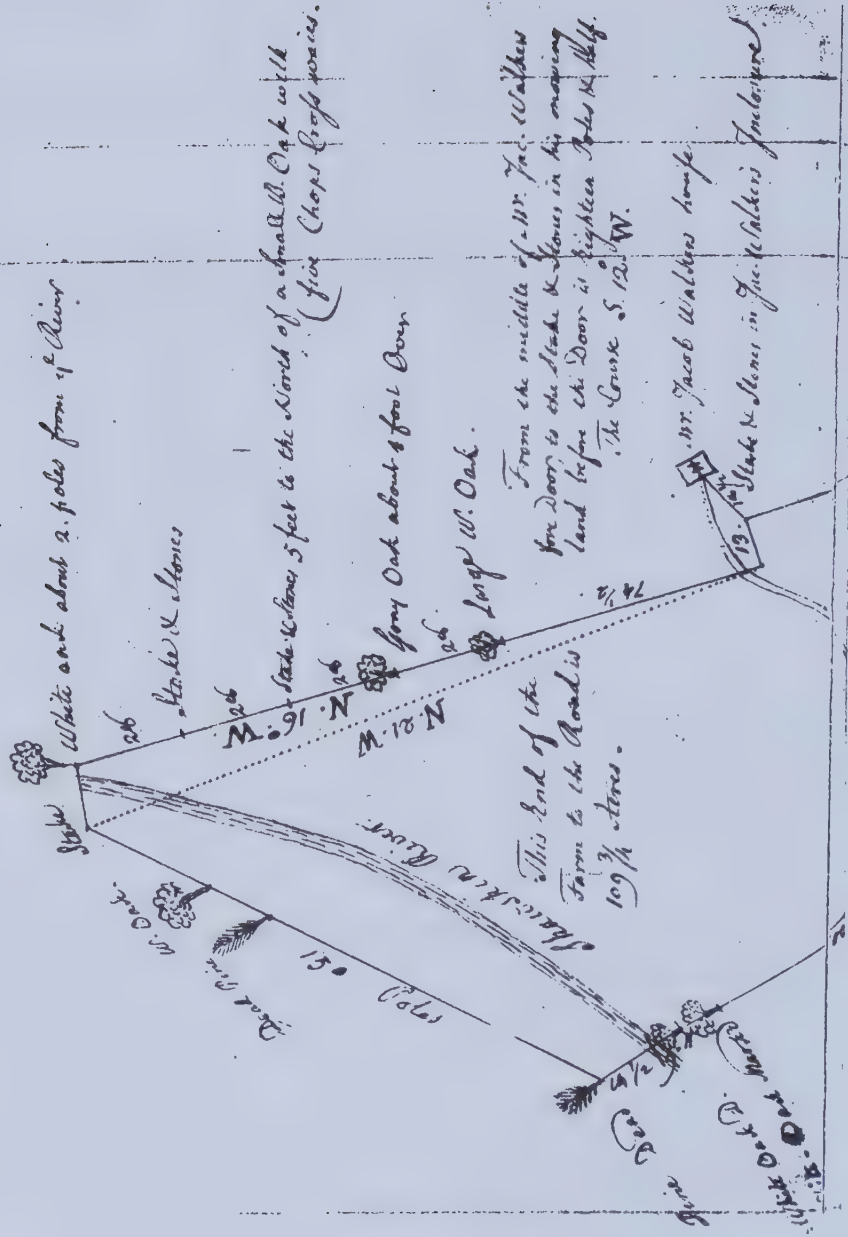 White oak about 2. poles from ye River
Stake
26
Stake & Stones
26
Stake & Stones 5 feet to the North of a Small W. Oak with
five Chops Cross ways.
N 16. W
26
Grey Oak about 1 foot Over
26
Large W. Oak.
N. 21. W
74 1/2
From the middle of Mr. Jac. Walkers
fore Door to the Stake & Stones in his mowing
land before the Door is Eighteen Poles & Half.
The Course S. 12. W.
Mr. Jacob Walkers house
Stake & Stones in Jac. Walkers Inclosure
13.
W. Oak.
Dead Pine
151
Poles
Shawshin River
This End of the
Farm to the Road is
109 3/4 Acres.
Pine Dead
1/2
White Oak D.
Oak Marked